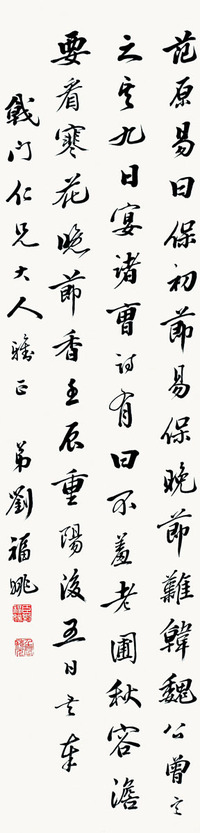 范原易曰保初節易保晚節難韓魏公曾言
之其九日宴諸曹詩有曰不羞老圃秋容澹
要看寒花晚節香壬辰重陽後五日書奉
戟門仁兄大人雅正 弟劉福姚